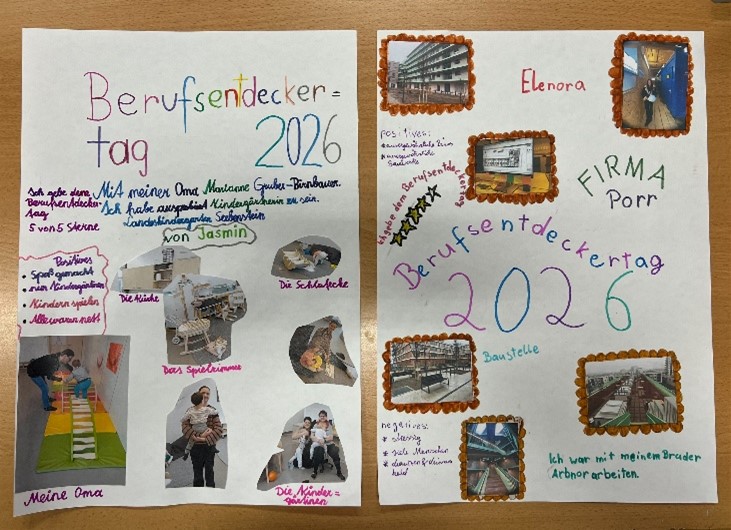 Berufsentdecker=
tag 2026
Ich gebe dem
Berufsentdecker-
tag
5 von 5 Sterne
Mit meiner Oma Marianne Gruber-Birnbauer.
Ich habe ausprobiert Kindergärtnerin zu sein.
Landeskindergarten Seebenstein
von Jasmin
Positives
• Spaß gemacht
• Kindern spielen
• Alle waren nett
Die Küche
Die Schlafecke
Das Spielzimmer
Meine Oma
Die Kinder=
gärtnerinnen
Elenora
positives:
FIRMA
Porr
Ich gebe dem Berufsentdeckertag
Berufsentdeckertag
2026
Baustelle
negatives:
* stressig
* viele Menschen
Ich war mit meinem Bruder
Arbnor arbeiten.